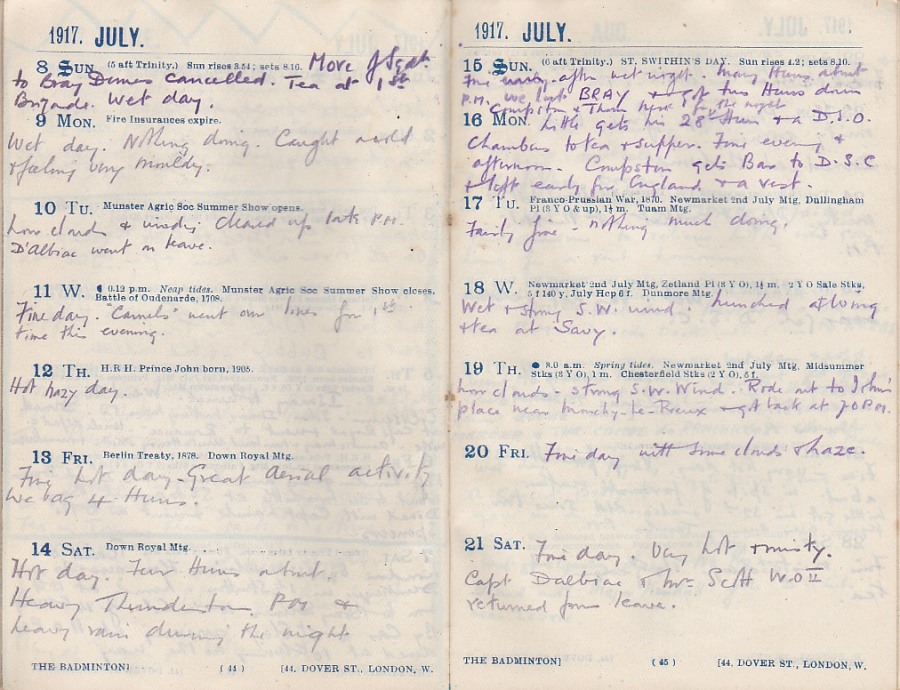 1917. JULY.
8 SUN. (5 aft Trinity.) Sun rises 3.54; sets 8.16. Move of Sqdn
to Bray Dunes Cancelled. Tea at 1st
Brigade. Wet day.
9 MON. Fire Insurances expire.
Wet day. Nothing doing. Caught cold
& feeling very mouldy.
10 TU. Munster Agric Soc Summer Show opens.
Low clouds & windy. Cleared up late P.M.
D'Albiac went on leave.
11 W. 0.12 p.m. Neap tides. Munster Agric Soc Summer Show closes.
Battle of Oudenarde, 1708.
Fine day. "Camels" went over lines for 1st
time this evening.
12 TH. H.R.H. Prince John born, 1905.
Hot hazy day.
13 FRI. Berlin Treaty, 1878. Down Royal Mtg.
Fine hot day. Great Aerial activity
We bag 4 Huns.
14 SAT. Down Royal Mtg.
Hot day. Few Huns about.
Heavy Thunderstorm P.M. &
heavy rain during the night
THE BADMINTON] (44) [44, DOVER ST., LONDON, W.
1917. JULY.
15 SUN. (6 aft Trinity.) ST. SWITHIN'S DAY. Sun rises 4.2; sets 8.10.
Fine after wet night. Many Huns about
P.M. We BRAY & two Huns down
Compston & the night
16 MON. Little gets his 28th Hun & a D.S.O.
Chambers to tea & supper. Fine evening &
afternoon. Compston gets Bar to D.S.C
& left early for England & a rest.
17 TU. Franco-Prussian War, 1870. Newmarket 2nd July Mtg, Dullingham
Pl (3 Y O & up), 1½ m. Tuam Mtg.
Fairly fine - nothing much doing.
18 W. Newmarket 2nd July Mtg, Zetland Pl (3 Y O), 1½ m. 2 Y O Sale Stks,
5 f 140 y, July Hcp 6 f. Dunmore Mtg.
Wet & strong S.W. wind. Lunched at Wing
& tea at Savy.
19 TH. 3.0 a.m. Spring tides. Newmarket 2nd July Mtg, Midsummer
Stks (3 Y O), 1 m. Chesterfield Stks (2 Y O), 5 f.
Low clouds - strong S.W. Wind. Rode out to
place near Monchy-le-Preux & got back at P.M.
20 FRI. Fine day with some clouds & haze.
21 SAT. Fine day. Very hot & misty.
Capt Dalbiac & Mr Scott W.O II
returned from leave.
THE BADMINTON] (45) [44, DOVER ST., LONDON, W.